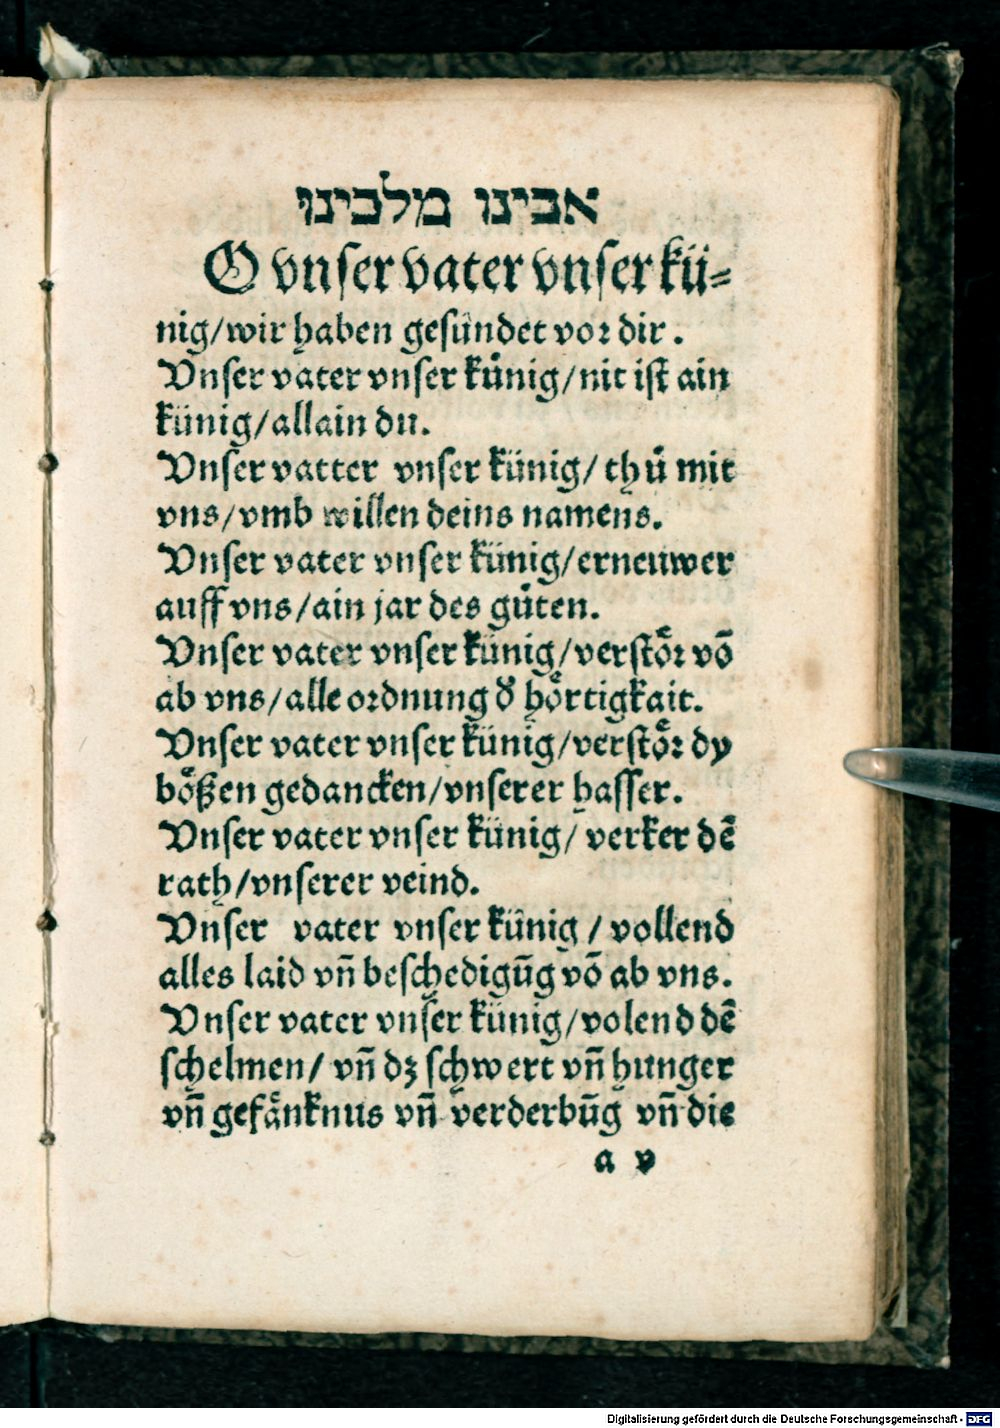 אבינו מלכינו
O vnser vater vnser kü⸗
nig/wir haben gesündet vor dir.
Vnser vater vnser künig/nit ist ain
künig/allain du.
Vnser vatter vnser künig/ thů mit
vns/vmb willen deins namens.
Vnser vater vnser künig/erneuwer
auff vns/ain jar des gůten.
Vnser vater vnser künig/verstoͤr võ
ab vns/alle ordnung d̕ hoͤrtigkait.
Vnser vater vnser künig/verstoͤr dy
boͤßen gedancken/vnserer hasser.
Vnser vater vnser künig/ verker dẽ
rath/vnserer veind.
Vnser vater vnser künig / vollend
alles laid vñ beschedigũg võ ab vns.
Vnser vater vnser künig/volend dẽ
schelmen/ vñ dz schwert vñ hunger
vñ gefaͤnknus vñ verderbũg vñ die
a v
Digitalisierung gefördert durch die Deutsche Forschungsgemeinschaft - DFG